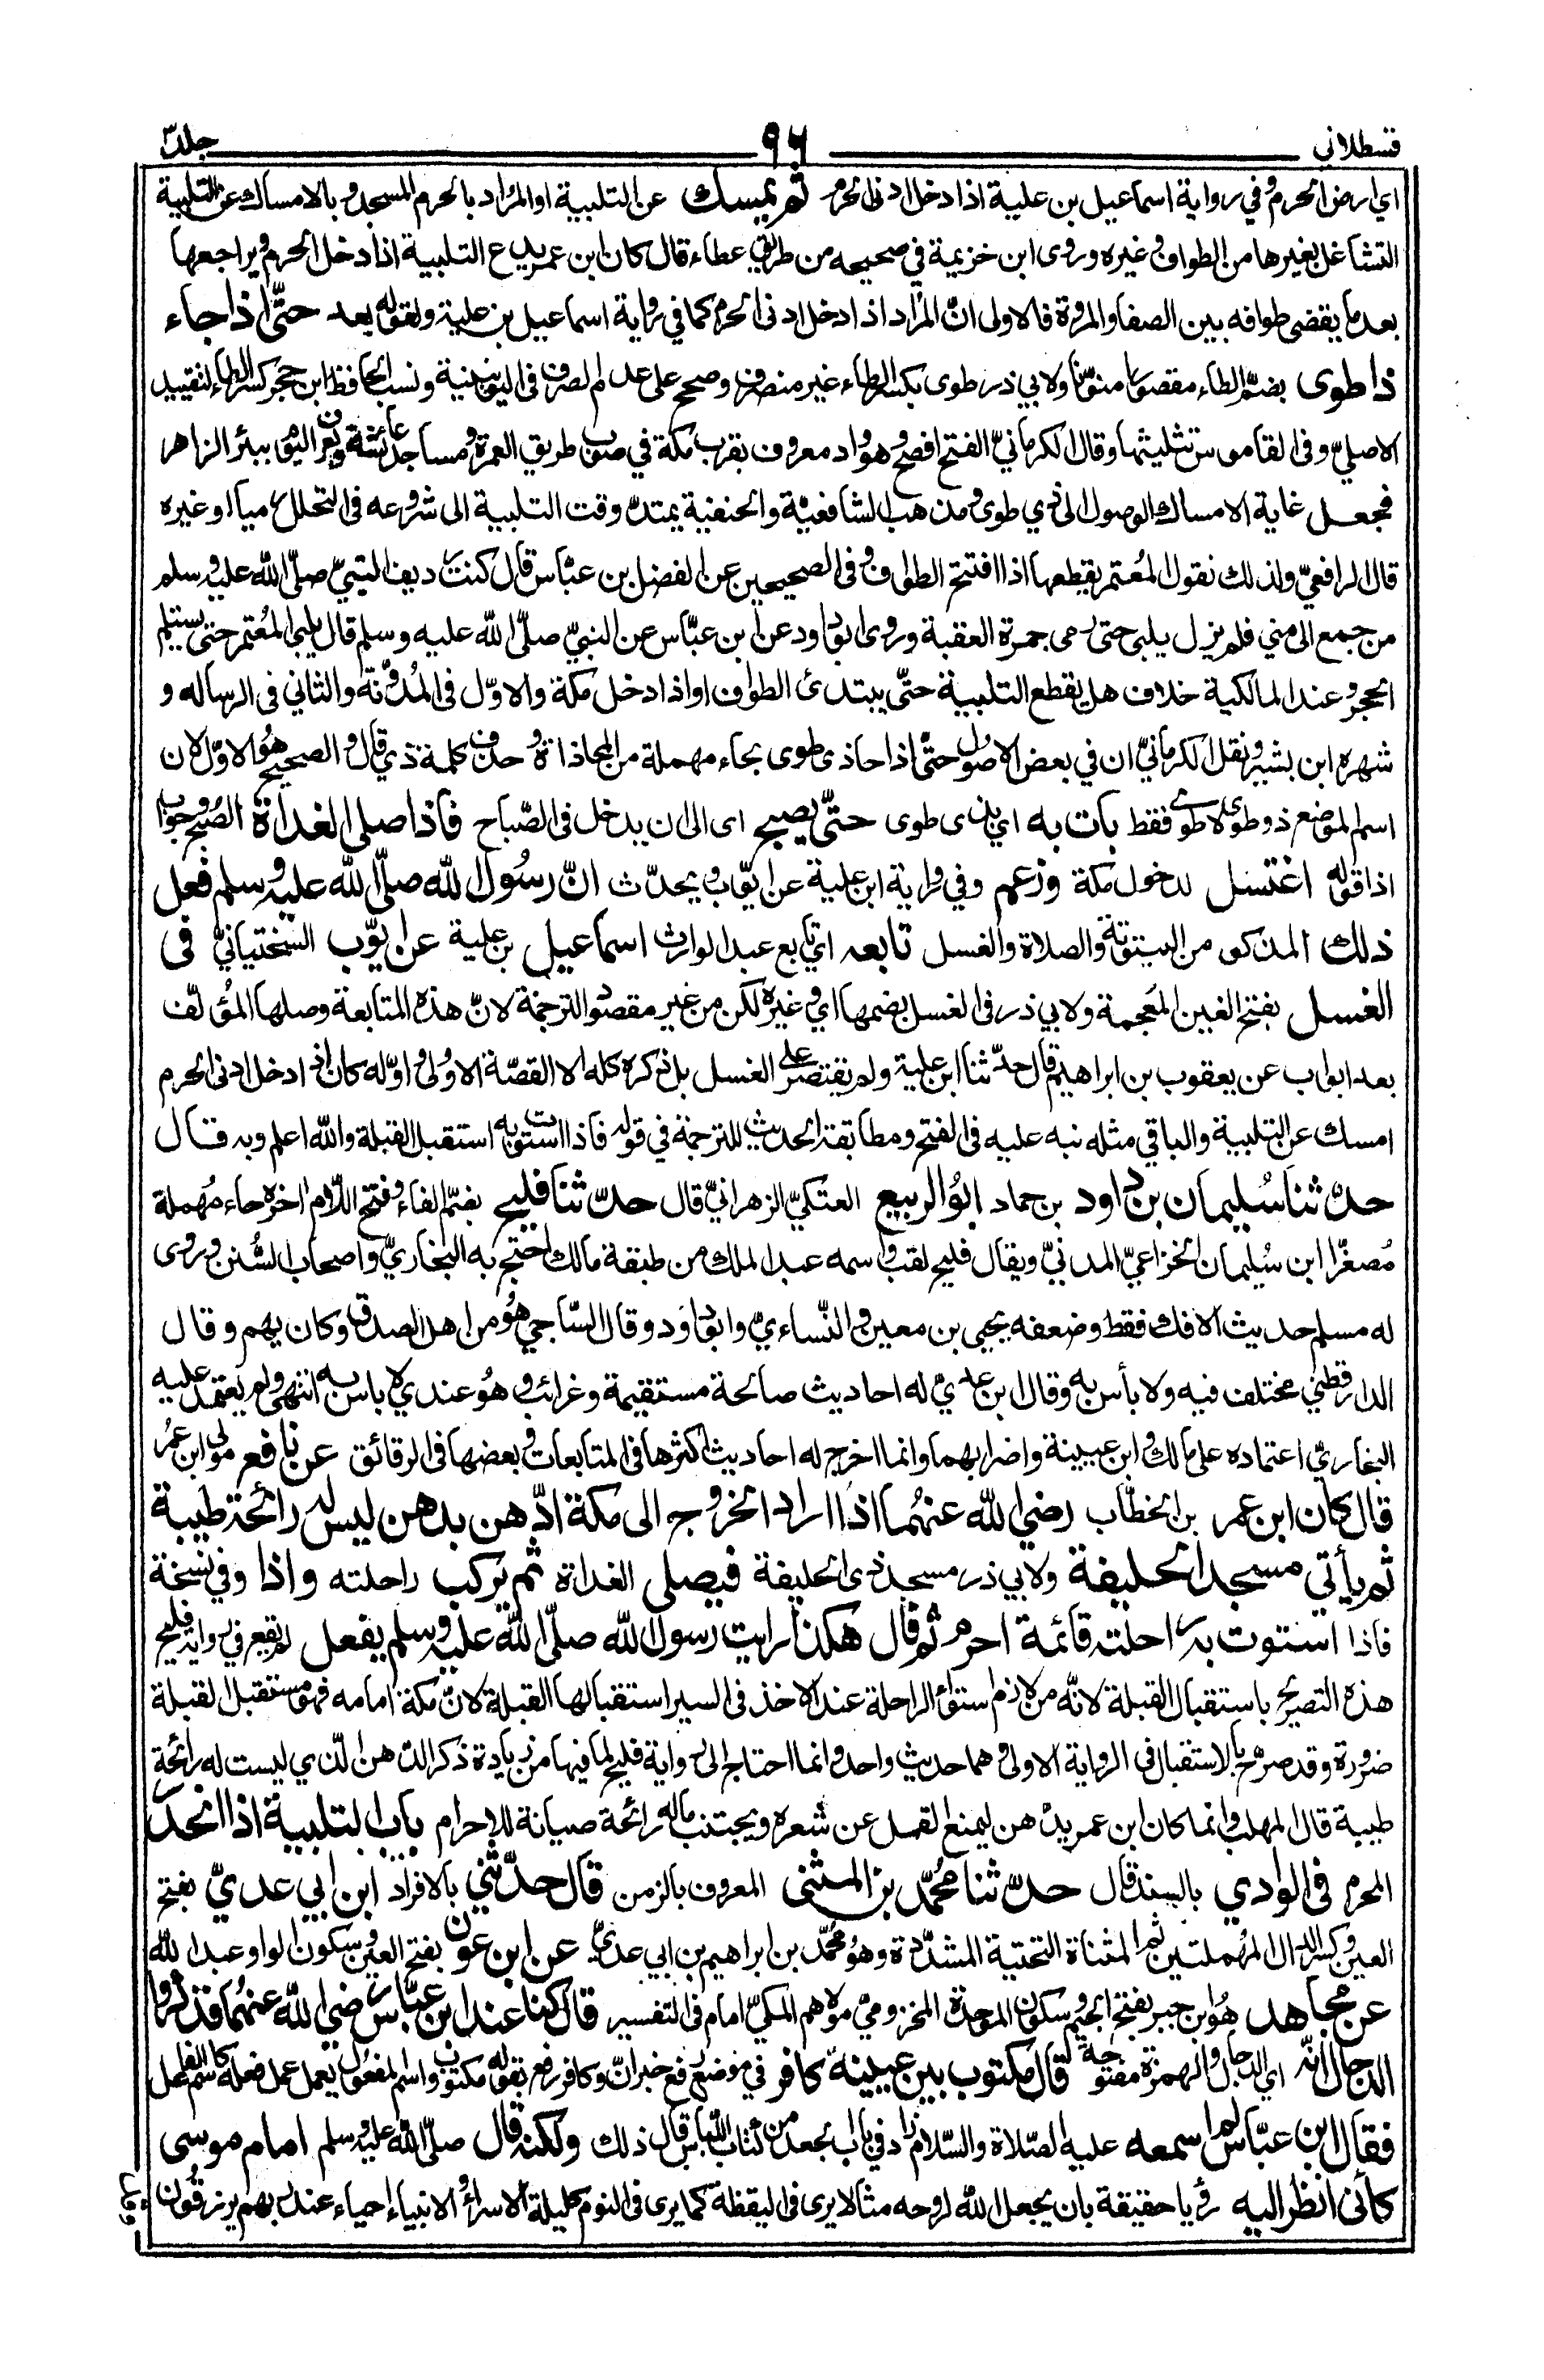 قسطلاني ٩٦ جلد ٣
اي ارض الحرم وفي رواية اسماعيل بن علية اذا دخل ادنى الحرم ثم يمسك عن التلبية او المراد بالحرم المسجد و بالامساك عن التلبية
التشاغل بغيرها من الطواف وغيره وروى ابن خزيمة في صحيحه من طريق عطاء قال كان ابن عمر يدع التلبية اذا دخل الحرم ويراجعها
بعد ما يقضى طوافه بين الصفا والمروة فالاولى انّ المراد اذا دخل ادنى الحرم كما في رواية اسماعيل بن علية ولقوله بعد حتّى اذا جاء
ذا طوى بضمّ الطاء مقصورا منوّنا ولابي ذر طوى بكسر الطاء غير منصرف وصحح على عدم الصرف في اليونينية ونسب الحافظ ابن حجر كسر الطاء لتقييد
الاصليّ وفى القاموس تثليثها وقال الكرمانيّ الفتح افصح وهو واد معروف بقرب مكة في صوب طريق العمرة ومساجد عائشة ويعرف اليوم ببئر الزاهر
فجعل غاية الامساك الوصول الى ذي طوى ومذهب الشافعيّة والحنفية يمتدّ وقت التلبية الى شروعه فى التحلل رميا او غيره
قال الرافعيّ ولذلك نقول المعتمر يقطعها اذا افتتح الطواف وفى الصحيحين عن الفضل بن عبّاس قال كنت رديف النبيّ صلّى الله عليه وسلم
من جمع الى منى فلم يزل يلبى حتى رمى جمرة العقبة وروى ابو داود عن ابن عبّاس عن النبيّ صلّى الله عليه وسلم قال يلبى المعتمر حتى يستلم
الحجر وعند المالكية خلاف هل يقطع التلبية حتّى يبتدئ الطواف او اذا دخل مكة والاوّل فى المدوّنة والثاني فى الرساله و
شهره ابن بشير ونقل الكرمانيّ ان في بعض الاصول حتّى اذا حاذى طوى بحاء مهملة من المحاذاة وحذف كلمة ذي قال والصحيح هو الاوّل لان
اسم الموضع ذو طوى لا طوى فقط بات به اي بذى طوى حتّى يصبح اى الى ان يدخل فى الصّباح فاذا صلى الغداة الصبح وجواب
اذا قوله اغتسل لدخول مكة وزعم وفي رواية ابن علية عن ايّوب ويحدّث انّ رسُول الله صلّى الله عليه وسلم فعل
ذلك المذكور من البيتوتة والصلاة والغسل تابعه اي تابع عبد الوارث اسماعيل بن علية عن ايّوب السختيانيّ فى
الغسل بفتح الغين المعجمة ولابي ذر فى الغسل بضمها اي وغيره لكن من غير مقصود الترجمة لانّ هذه المتابعة وصلها المؤلّف
بعد ابواب عن يعقوب بن ابراهيم قال حدّثنا ابن علية ولم يقتصر على الغسل بل ذكره كله الا القصّة الاولى واوّله كان اذا دخل ادنى الحرم
امسك عن التلبية والباقي مثله نبه عليه فى الفتح ومطابقة الحديث للترجمة في قوله فاذا استوت به استقبل القبلة والله اعلم وبه قال
حدّثنا سُليمان بن داود بن حماد ابُو الربيع العتكيّ الزهرانيّ قال حدّثنا فليح بضمّ الفاء وفتح اللّام اخره حاء مُهملة
مُصغّرا ابن سُليمان الخزاعيّ المدنيّ ويقال فليح لقب واسمه عبد الملك من طبقة مالك احتج به البخاريّ واصحاب السُّنن وروى
له مسلم حديث الافك فقط وضعفه يحيى بن معين والنّساءيّ وابو داود وقال السّاجي هو من اهل الصدق وكان يهم وقال
الدارقطنيّ مختلف فيه ولا بأس به وقال ابن عديّ له احاديث صالحة مستقيمة وغرائب وهو عندي لا باس به انتهى ولم يعتمد عليه
البخاريّ اعتماده على مالك وابن عيينة واضرابهما وانما اخرج له احاديث اكثرها فى المتابعات وبعضها فى الرقائق عن نافع مولى ابن عمُر
قال كان ابن عمر بن الخطّاب رضي الله عنهُما اذا اراد الخروج الى مكة ادّهن بدهن ليس له رائحة طيبة
ثم يأتي مسجد الحليفة ولابي ذر مسجد ذى الحليفة فيصلى الغداة ثم يركب راحلته واذا وفي نسخة
فاذا استوت به راحلته قائمة احرم ثم قال هكذا رايت رسول الله صلّى الله عليه وسلم يفعل لم يقع في رواية فليح
هذه التصريح باستقبال القبلة لانّه من لازم استواء الراحلة عند الاخذ فى السير استقبالها القبلة لانّ مكة امامه فهو مستقبل القبلة
ضرورة وقد صرح بالاستقبال فى الرواية الاولى وهما حديث واحد وانما احتاج الى رواية فليح لما فيها من زيادة ذكر الدّهن الّذي ليست له رائحة
طيبة قال المهلب وانما كان ابن عمر يدّهن ليمنع القمل عن شعره ويجتنب ما له رائحة صيانة للاحرام باب التلبية اذا انحدر
المحرم فى الوادي بالسند قال حدّثنا محُمّد بن المثنى المعروف بالزمن قال حدّثني بالافراد ابن ابي عديّ بفتح
العين وكسر الدال المهُملتين ثم المثناة التحتية المشدّدة وهو محُمّد بن ابراهيم بن ابي عديّ عن ابن عون بفتح العين وسكون الواو عبد الله
عن مجاهد هُو ابن جبر بفتح الجيم وسكون الموحدة المخزوميّ مولاهم المكيّ امام فى التفسير قال كنا عند ابن عبّاس رضي الله عنهُما فذكروا
الدجال انّه اي الدجال والهمزة مفتوحة قال مكتوب بين عينيه كافر في موضع رفع خبر انّ وكافر رفع بقوله مكتوب واسم المفعول يعمل عمل فعله كاسم الفاعل
فقال ابن عبّاس لم اسمعه عليه الصّلاة والسّلام زاد في باب الجعد من كتاب اللباس قال ذلك ولكنه قال صلّى الله عليه وسلم اما موسى
كأنى انظر اليه رؤيا حقيقة بان يجعل الله لروحه مثالا يرى فى اليقظة كما يرى فى النوم كليلة الاسراء والانبياء احياء عند ربهم يرزقُون